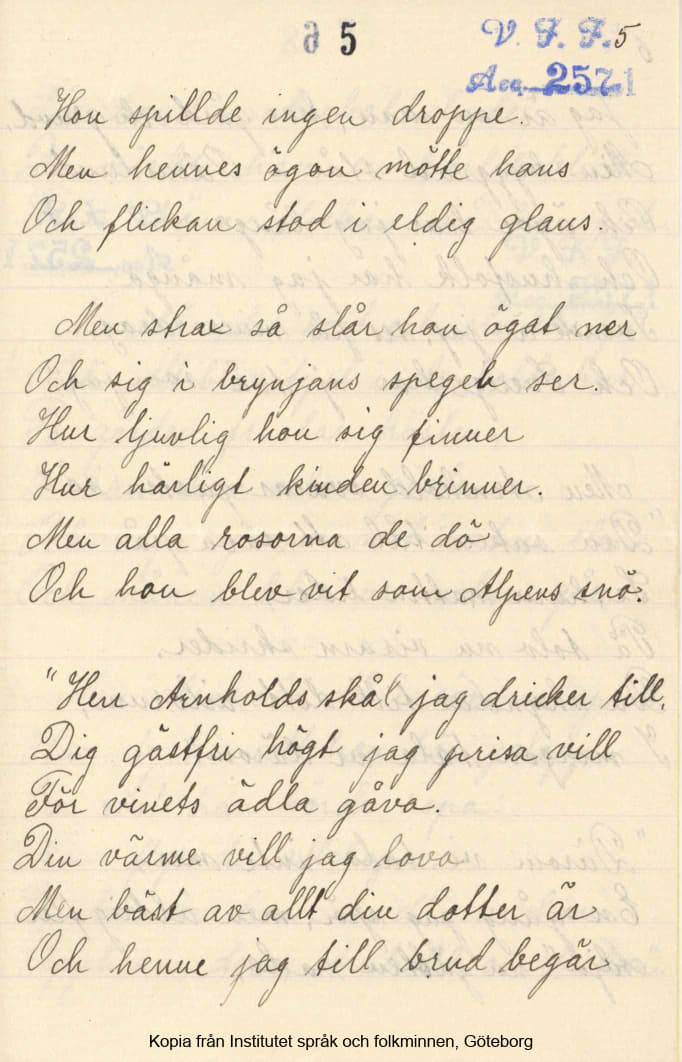 5
V. F. F. 5
Acc. 2571
Hon spillde ingen droppe.
Men hennes ögon mötte hans
Och flickan stod i eldig glans.
Men strax så slår hon ögat ner
Och sig i brynjans spegel ser.
Hur ljuvlig hon sig finner
Hur härligt kinden brinner.
Men alla rosorna de dö
Och hon blev vit som Alpens snö.
"Herr Arnholds skål jag dricker till,
Dig gästfri högt jag prisa vill
För vinets ädla gåva.
Din värme vill jag lova
Men bäst av allt din dotter är
Och henne jag till brud begär
Kopia från Institutet språk och folkminnen, Göteborg